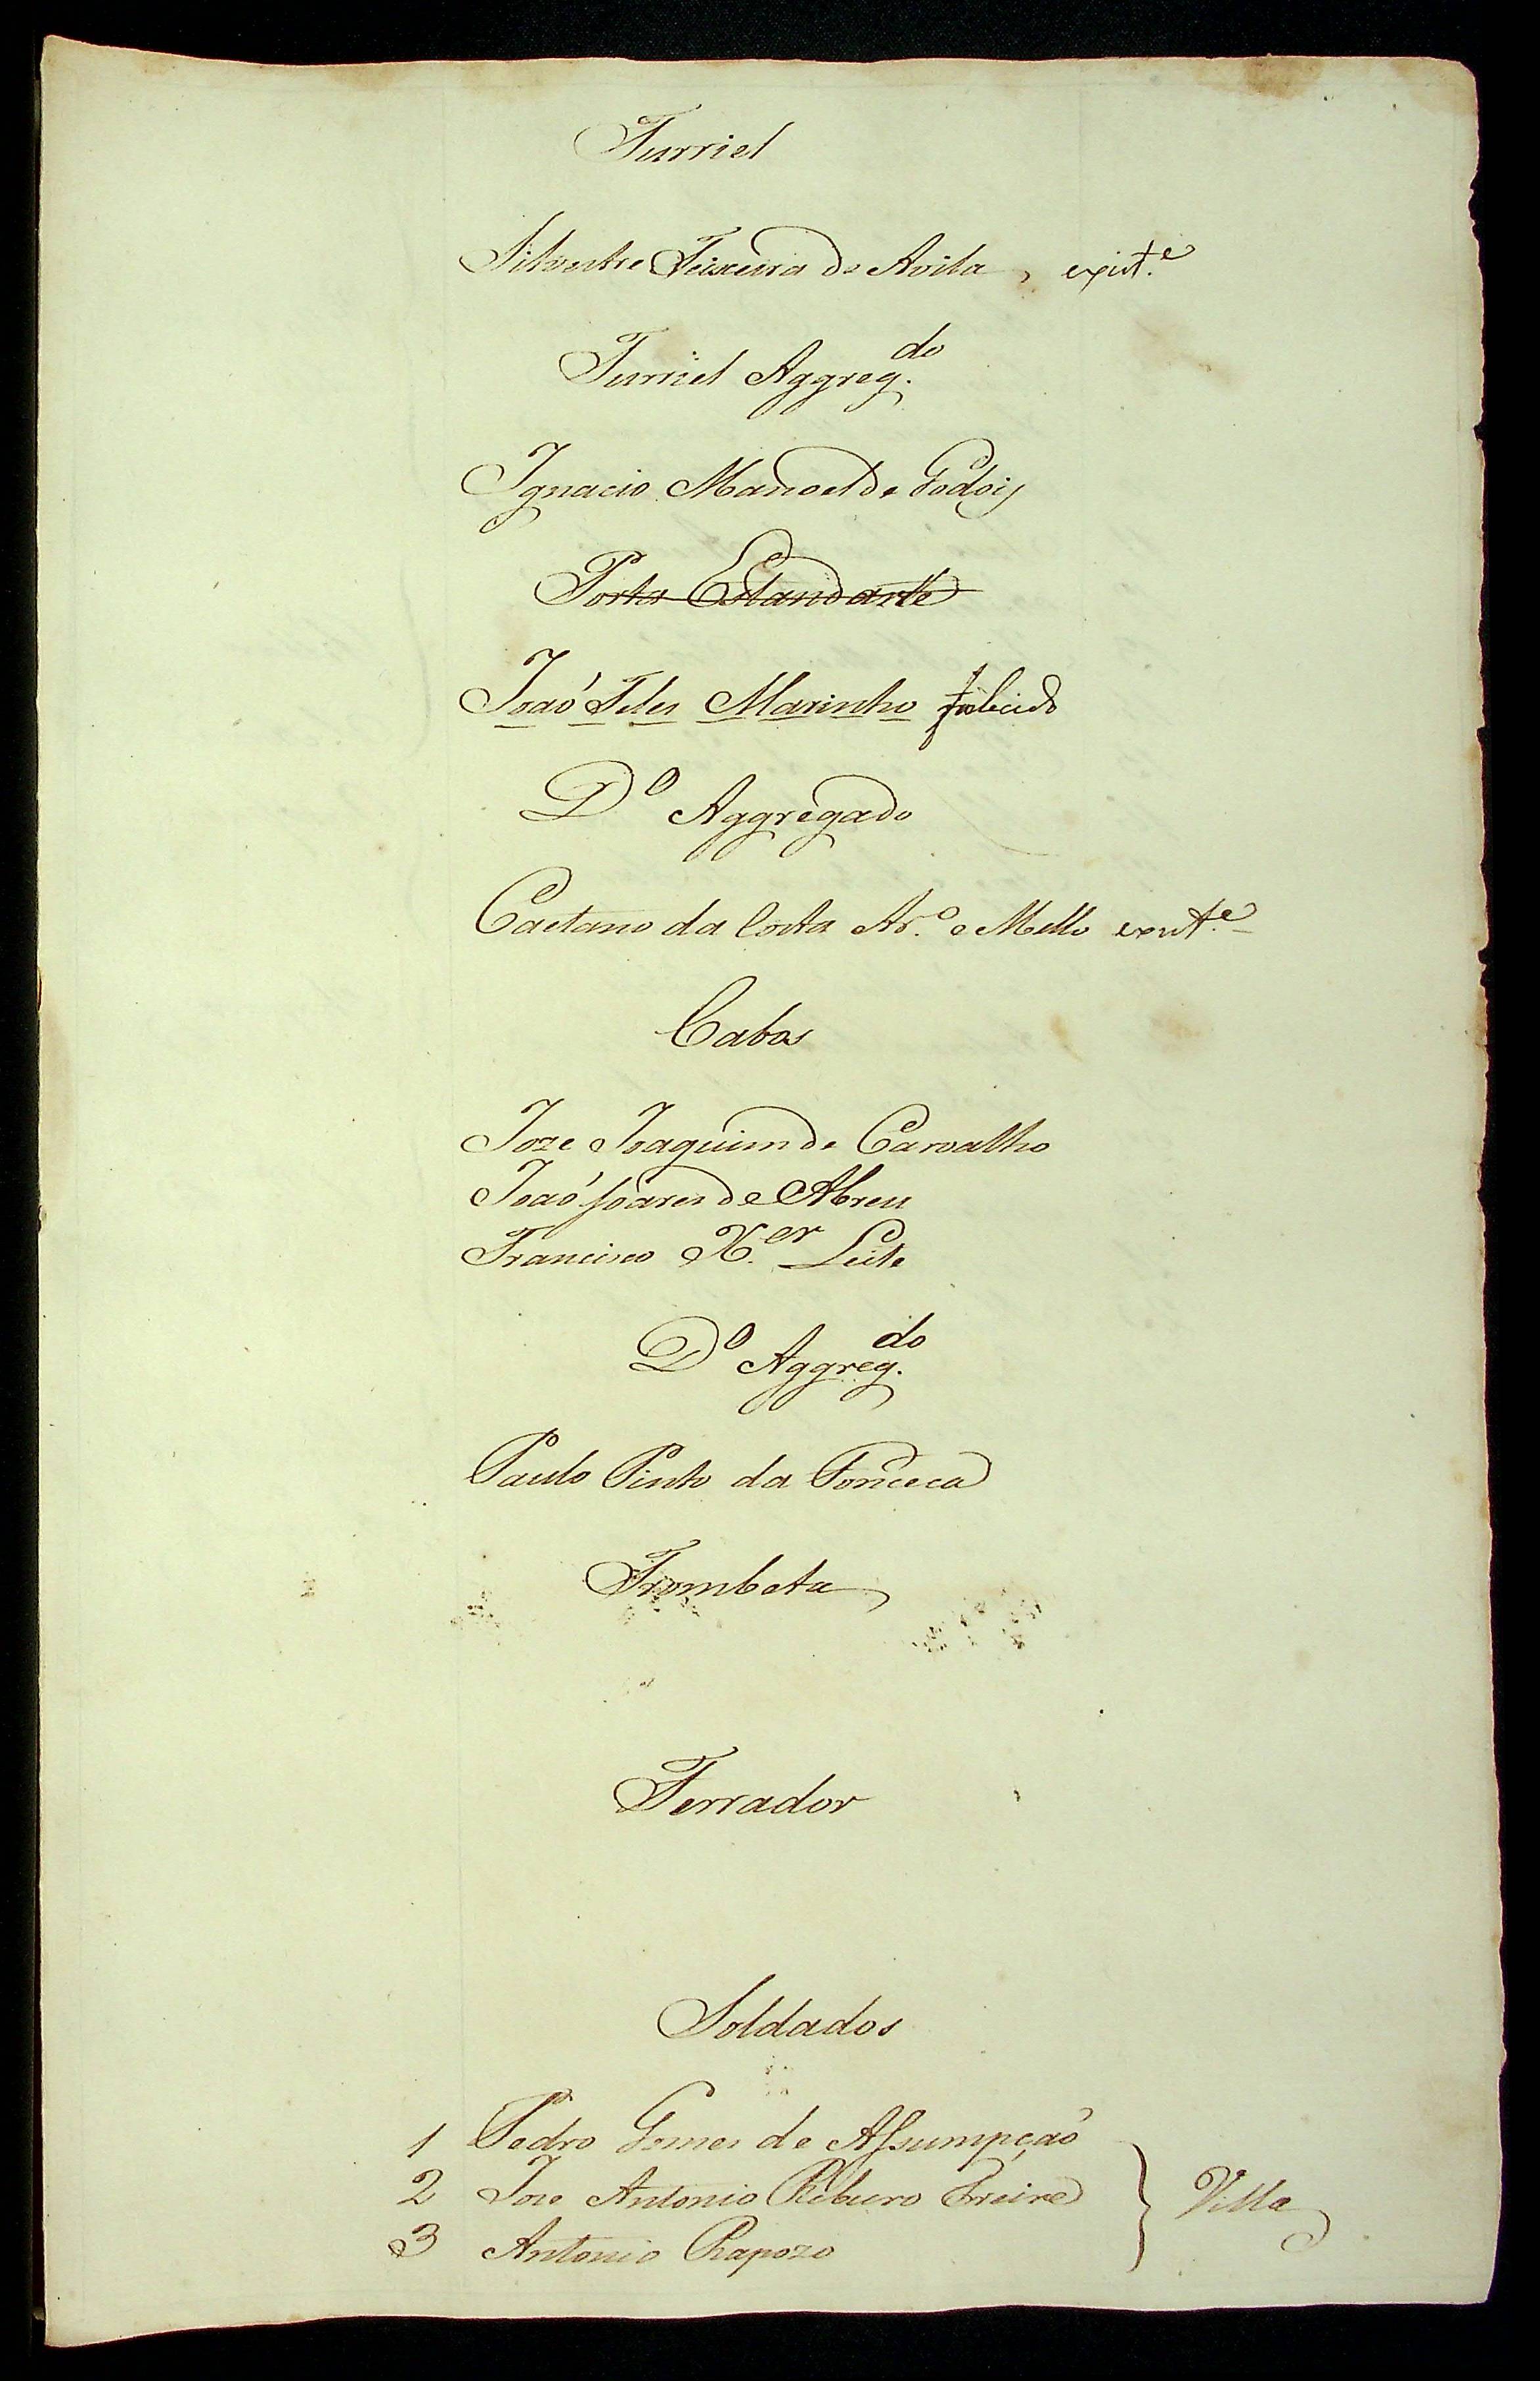 Furriel
Silvestre Teixeira de Avila, exist.e
Furriel Aggreg.do
Ignacio Manoel de Godoiz
Porta Estandarte
Joaó Teles Marinho falecido
Do Aggregado
Caetano da Costa Ar.o e Mello exist.e
Cabos
Joze Joaquim de Carvalho
Joaó Soares de Abreu
Francisco X.er Leite
Do Aggreg.do
Paulo Pinto da Fonceca
Trombeta
Ferrador
Soldados
1 Pedro Gomes de Assumpçaó
2 Joze Antonio Ribeiro Freire } Villa
3 Antonio Rapozo